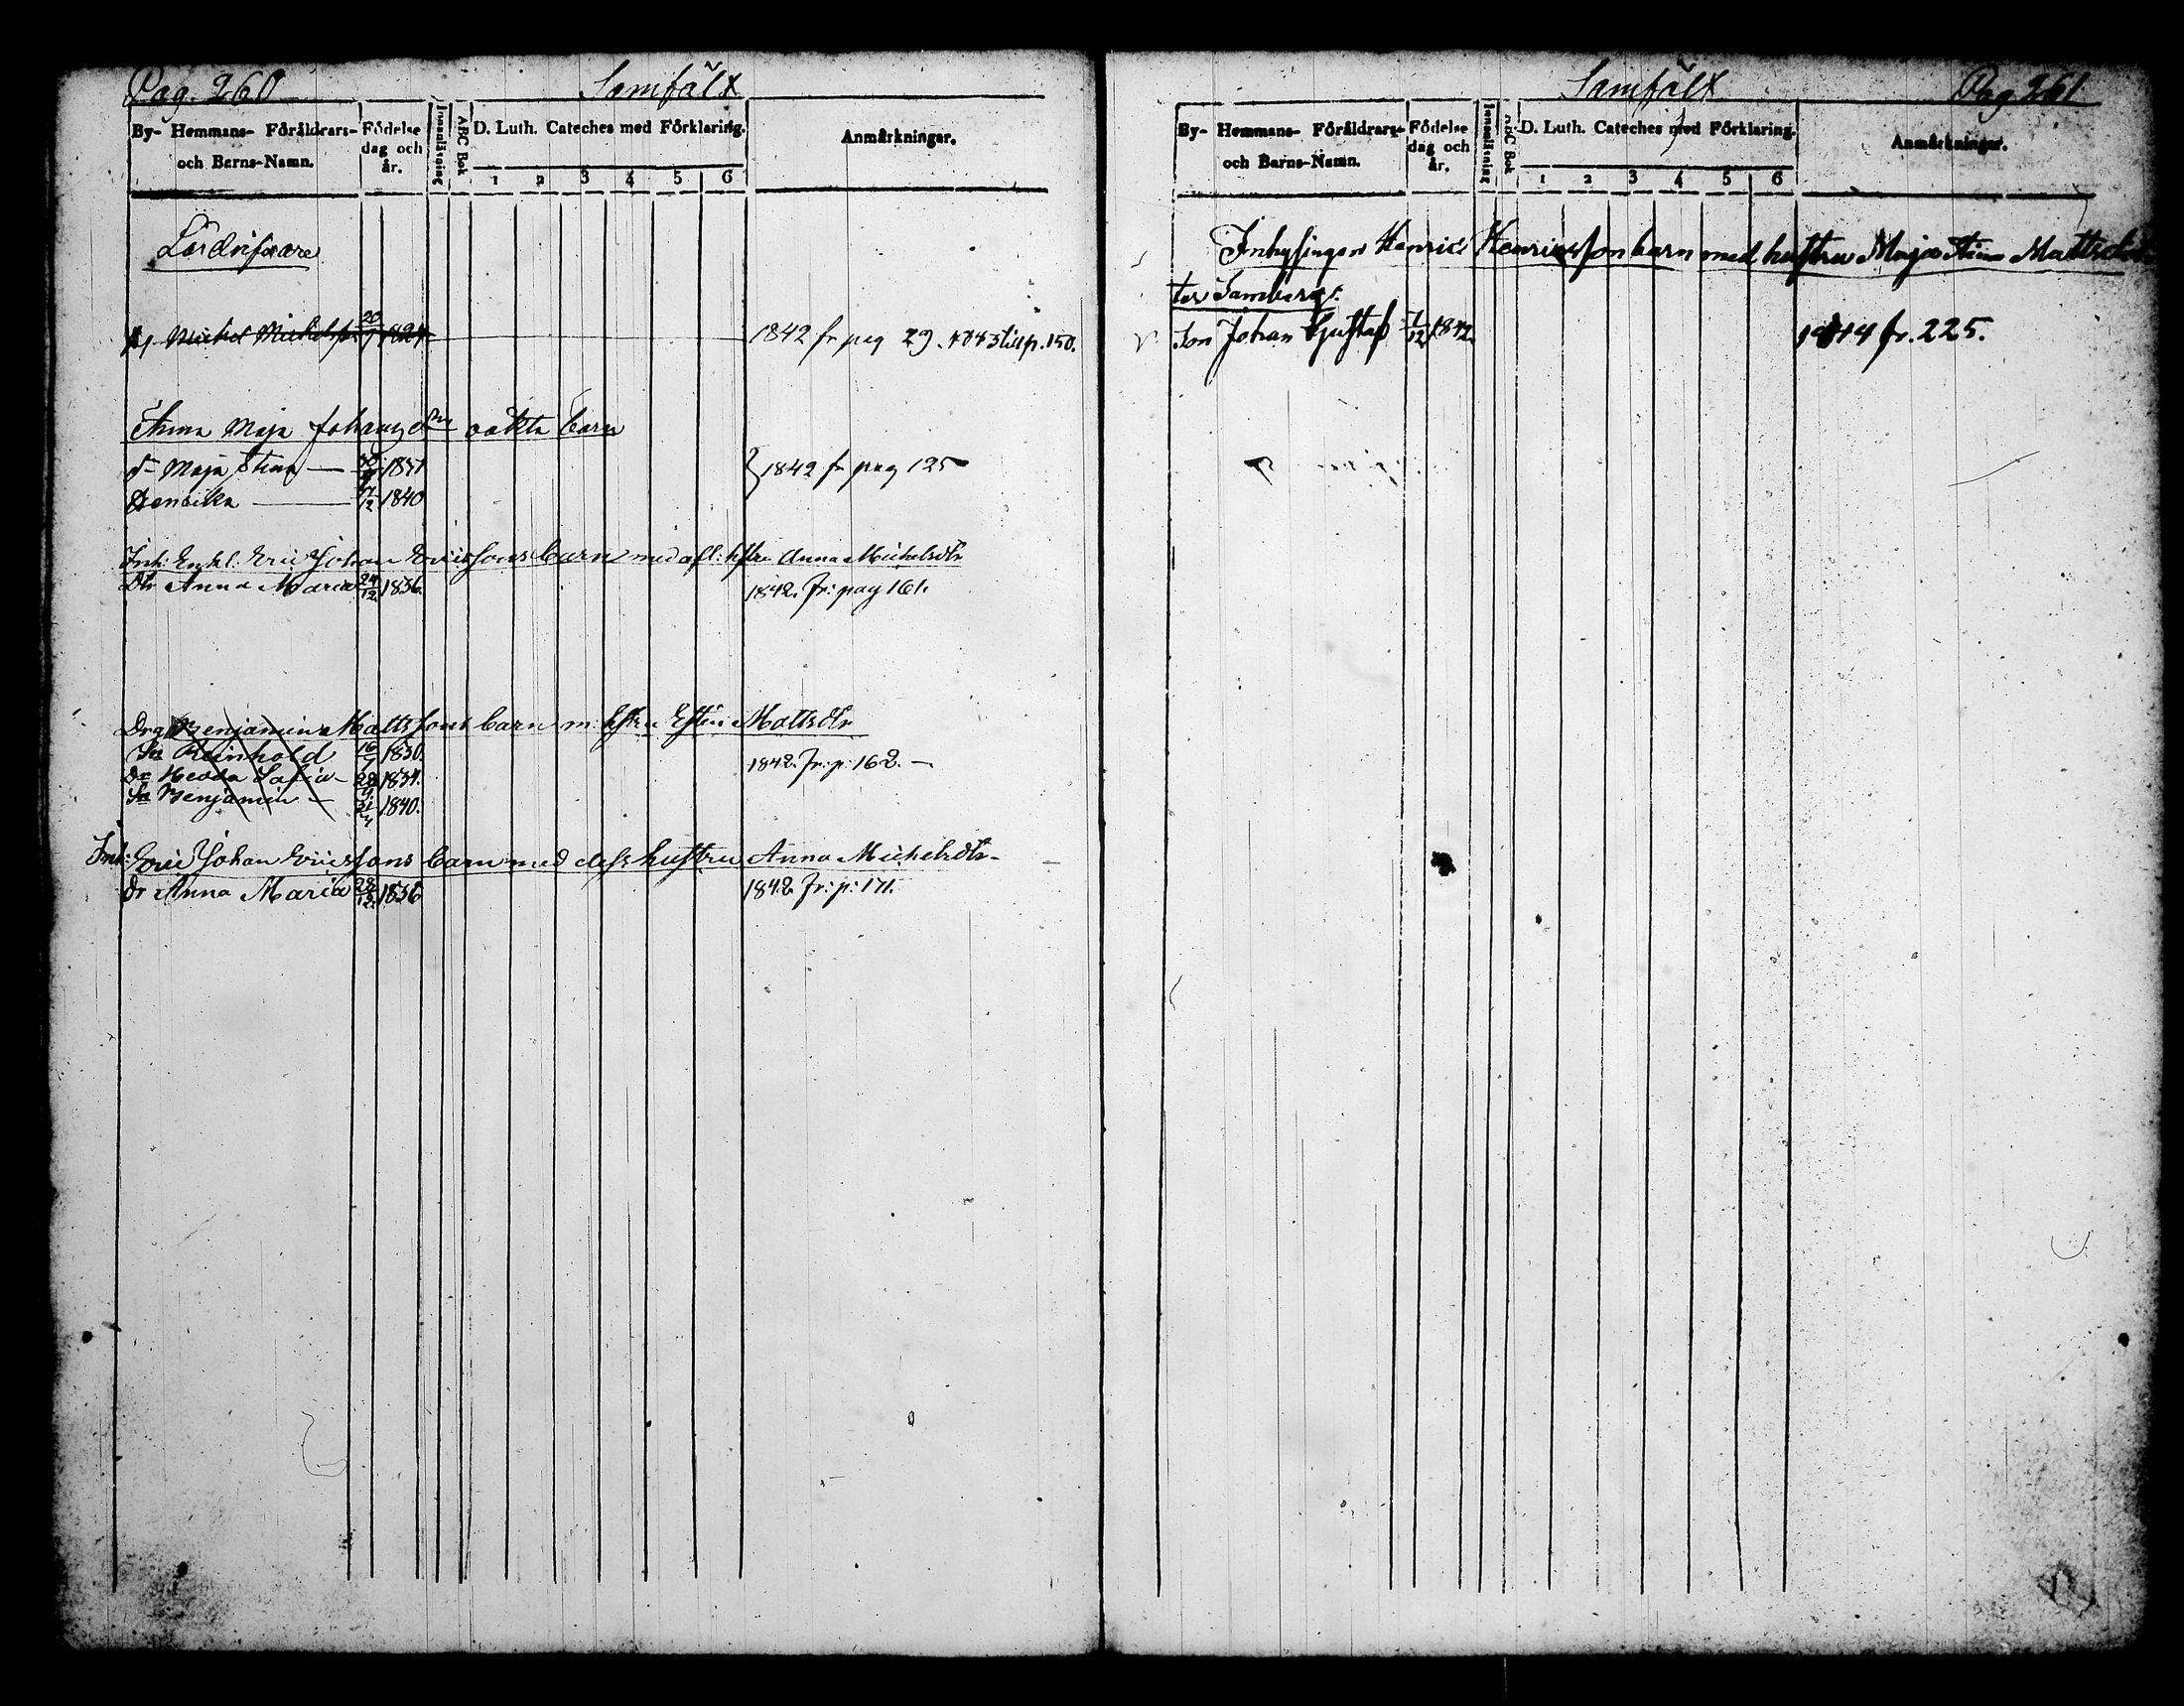 Pag. 260
Samfält
By- Hemmans- Föräldrars- och Barns-Namn.
Födelse dag och år.
Innanläsning
ABC Bok
D. Luth. Cateches med Förklaring.
1 2 3 4 5 6
Anmärkningar.
Michel Michelsson 20/9 1824 1842 fr pag 29. 1843 till p. 150.
Anna Maja Johansdr oäkta barn
dr Maja Stina 1842 fr pag 125
Henrika 1840
Inh: Enkl. Eric Johan Ericssons barn med afl: hstru Anna Michelsdtr
Dtr Anna Maria 24/12 1836. 1842. Fr: pag 161.
Drg Benjamin Mattssons barn m: hstru Mattsdtr
Sn Reinhold 16/7 1830.
1842. Fr: p: 162.
Dr Hedda Sofia 1834.
Sn Benjamin 1840.
Inh: Eric Johan Ericssons barn med dess hustru Anna Michelsdtr
Dr Anna Maria 1836 1842 Fr: p: 171.
Samfält
Pag 261
By- Hemmans- Föräldrars- och Barns-Namn.
Födelse dag och år.
Innanläsning
ABC Bok
D. Luth. Cateches med Förklaring.
1 2 3 4 5 6
Anmärkningar.
Inhysingen Henric Henricsson barn med hustru Maja Stina Mattsdot
ter Samberg.
Son Johan Gustaf 1/12 1842. 1844 fr. 225.